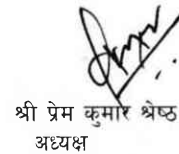 श्री प्रेम कुमार श्रेष्ठ
अध्यक्ष